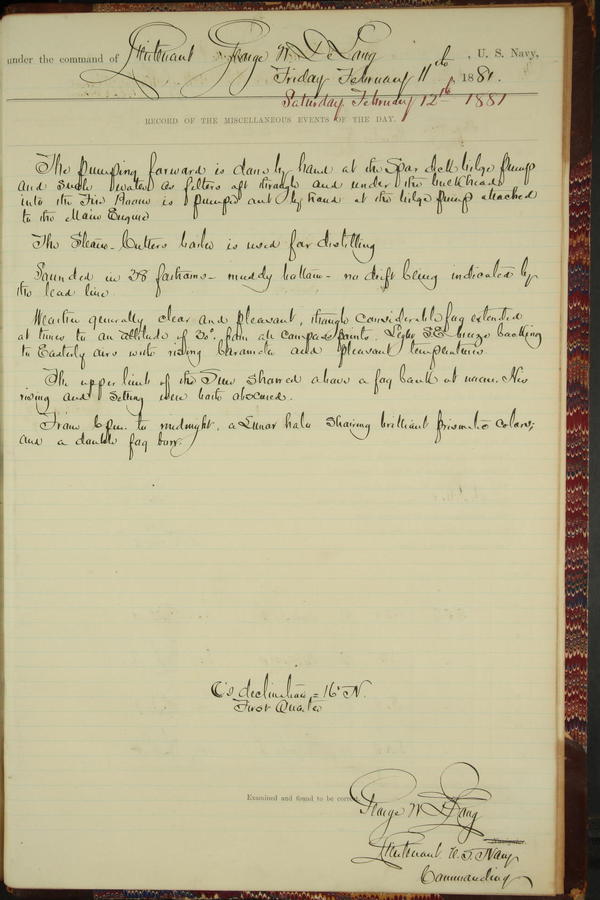 under the command of Lieutenant George W. De Long, U. S. Navy,
Friday February 11th, 1881.
Saturday February 12th 1881
RECORD OF THE MISCELLANEOUS EVENTS OF THE DAY.
The pumping forward is done by hand at the Spar deck bilge pump
and such water as filters aft through and under the bulkheads
into the Fire Room is pumped out by hand at the bilge pump attached
to the Main Engine
The Steam-Cutters boiler is used for distilling
Sounded in 28 fathoms - muddy bottom - no drift being indicated by
the lead line.
Weather generally clear and pleasant, though considerable fog extended
at times to an altitude of 20°. from all compass points. Light S.E. breeze backing
to Easterly airs with rising barometer and pleasant temperatures
The upper limb of the Sun showed above a fog bank at noon. His
rising and setting were both obscured.
From 6 pm. to midnight, a Lunar halo showing brilliant prismatic colors;
and a double fog bow.
☾'s declination = 16° N.
First Quarter
Examined and found to be correct.
George W. De Long
Navigator.
Lieutenant U.S. Navy
Commanding